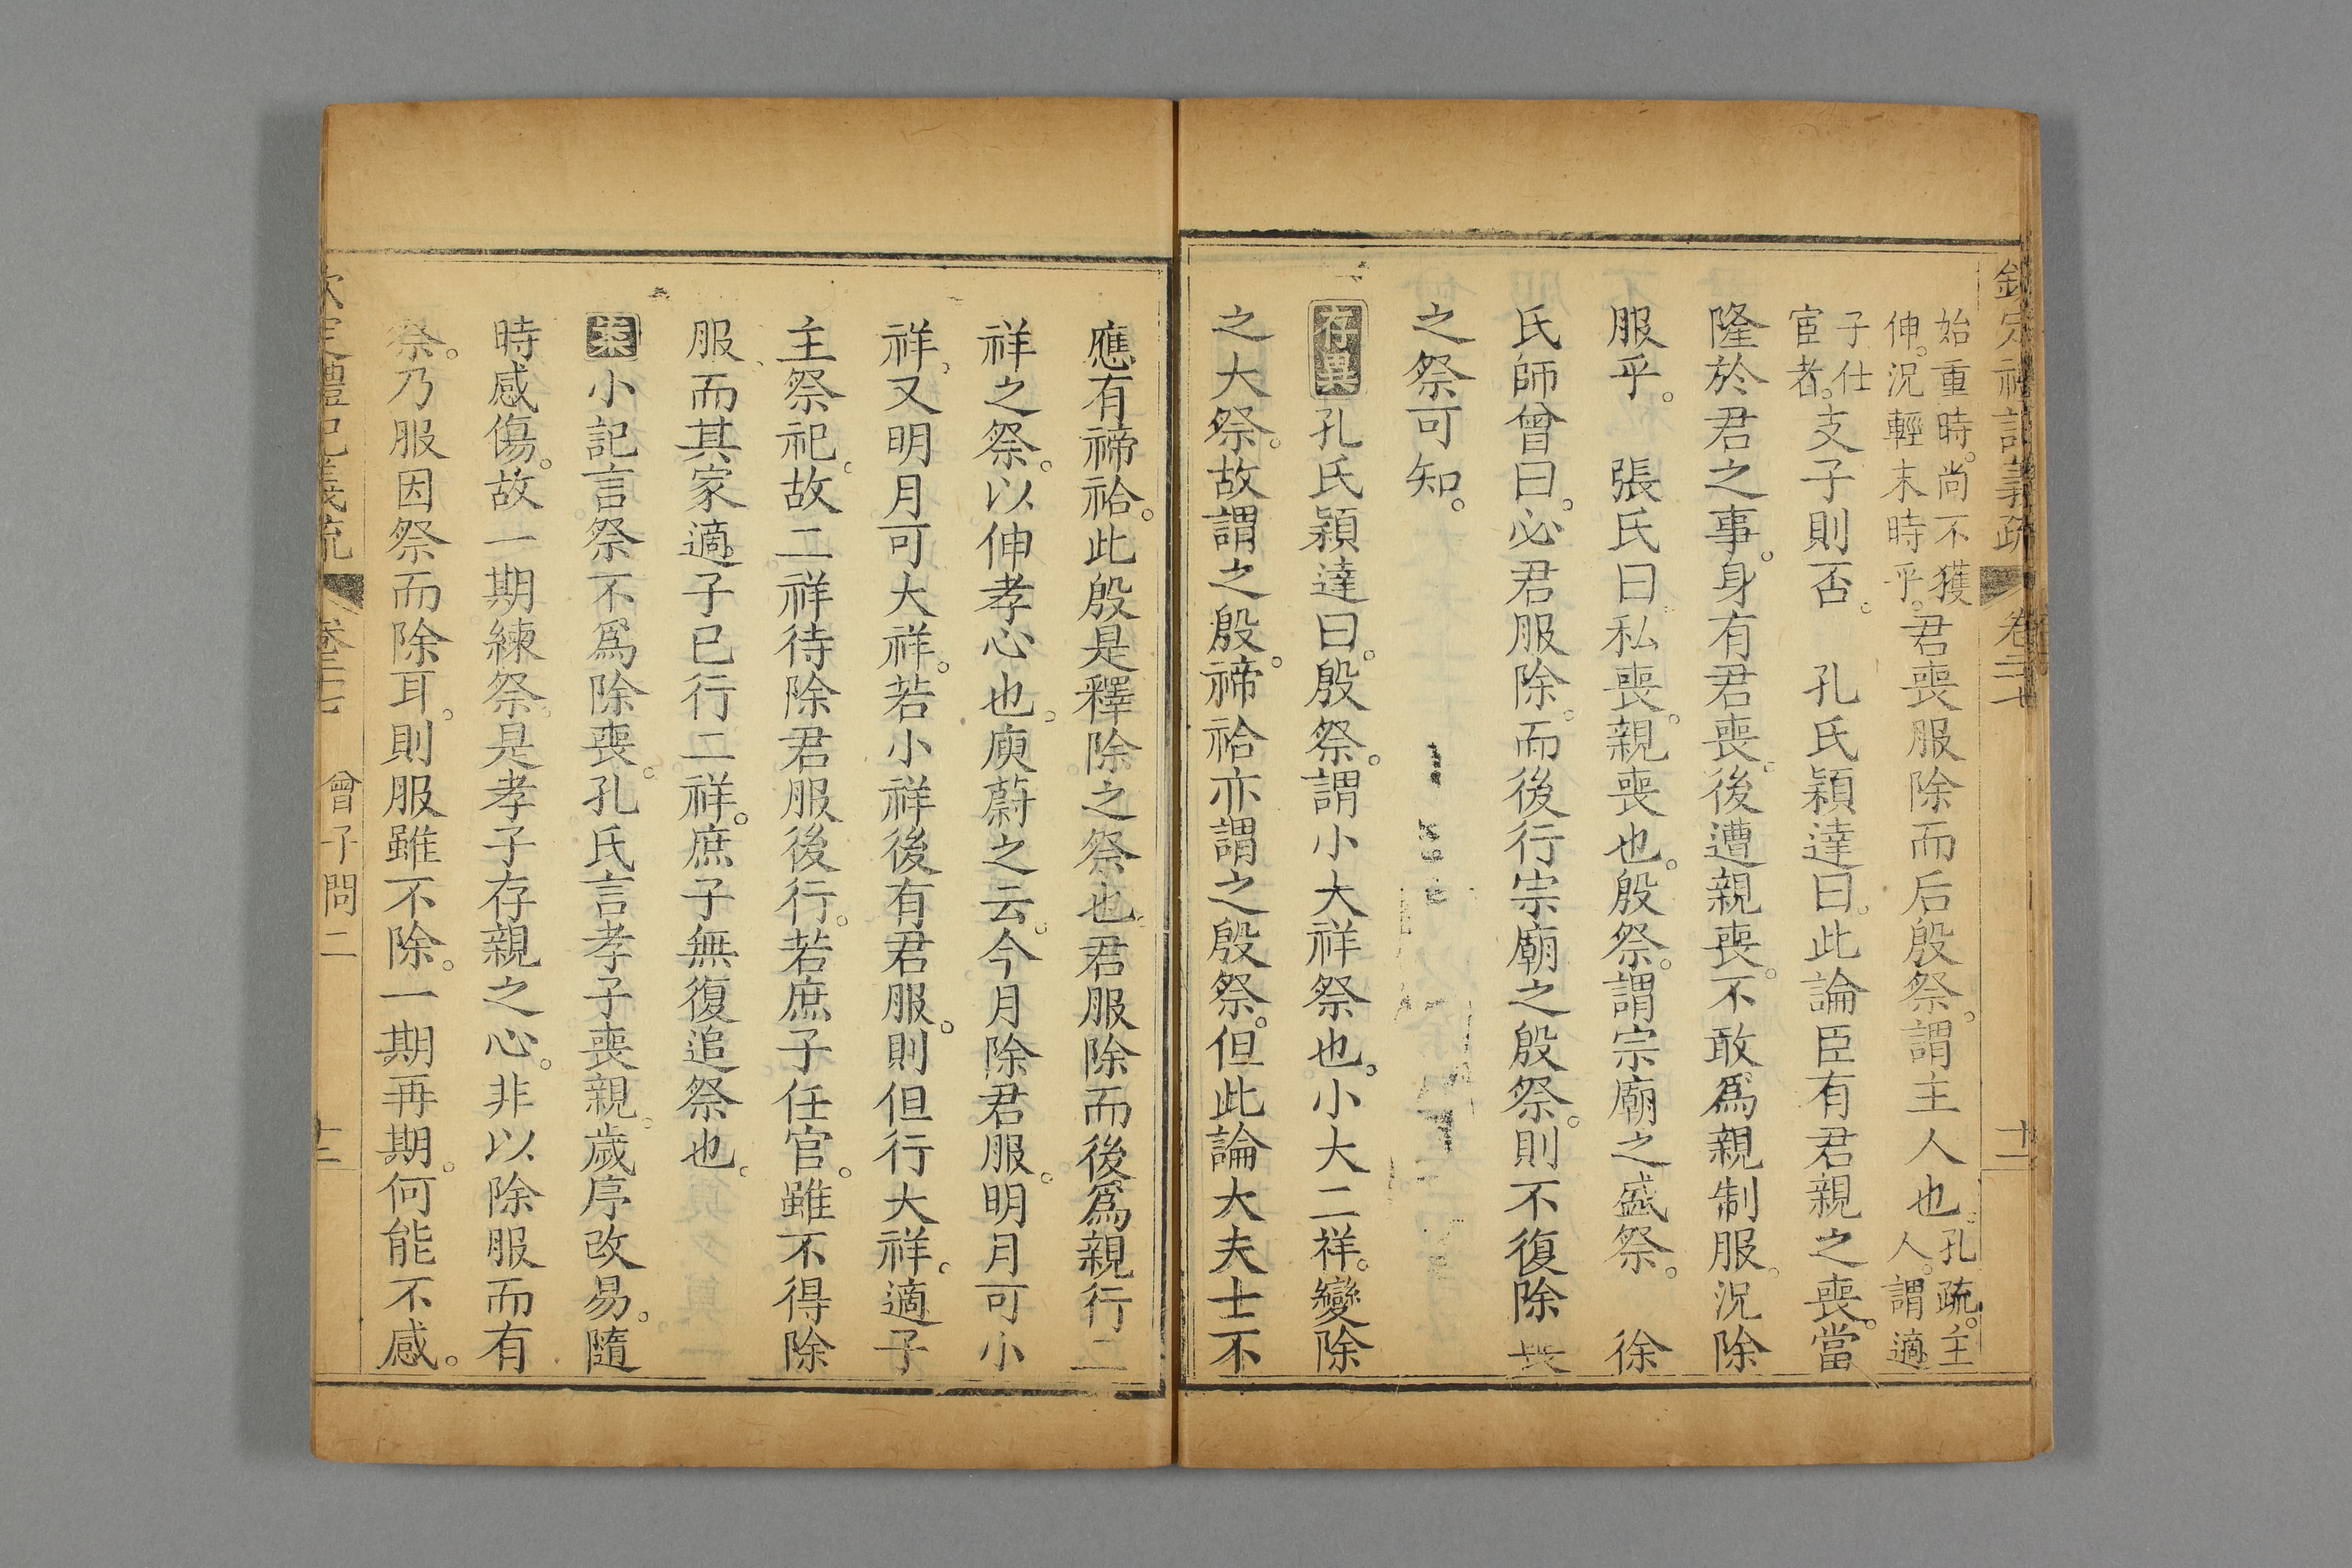 欽定禮記義疏 卷二十七 十二
始重時。尚不獲
伸。況輕末時乎。君喪服除而后殷祭。謂主人也。孔疏。主
人。謂適
子仕
宦者。支子則否。 孔氏穎達曰。此論臣有君親之喪。當
隆於君之事。身有君喪。後遭親喪。不敢爲親制服。況除
服乎。 張氏曰。私喪。親喪也。殷祭。謂宗廟之盛祭。 徐
氏師曾曰。必君服除。而後行宗廟之殷祭。則不復除喪
之祭可知。
存異孔氏穎達曰。殷祭。謂小大祥祭也。小大二祥。變除
之大祭。故謂之殷。禘祫亦謂之殷祭。但此論大夫士不
應有禘祫。此殷是釋除之祭也。君服除而後爲親行二
祥之祭。以伸孝心也。庾蔚之云。今月除君服。明月可小
祥。又明月可大祥。若小祥後有君服。則但行大祥。適子
主祭祀。故二祥待除君服後行。若庶子任官。雖不得除
服。而其家適子已行二祥。庶子無復追祭也。
案小記言祭不爲除喪。孔氏言孝子喪親。歲序改易。隨
時感傷。故一期練祭。是孝子存親之心。非以除服而有
祭。乃服因祭而除耳。則服雖不除。一期再期。何能不感。
欽定禮記義疏 卷二十七 曾子問二 十三